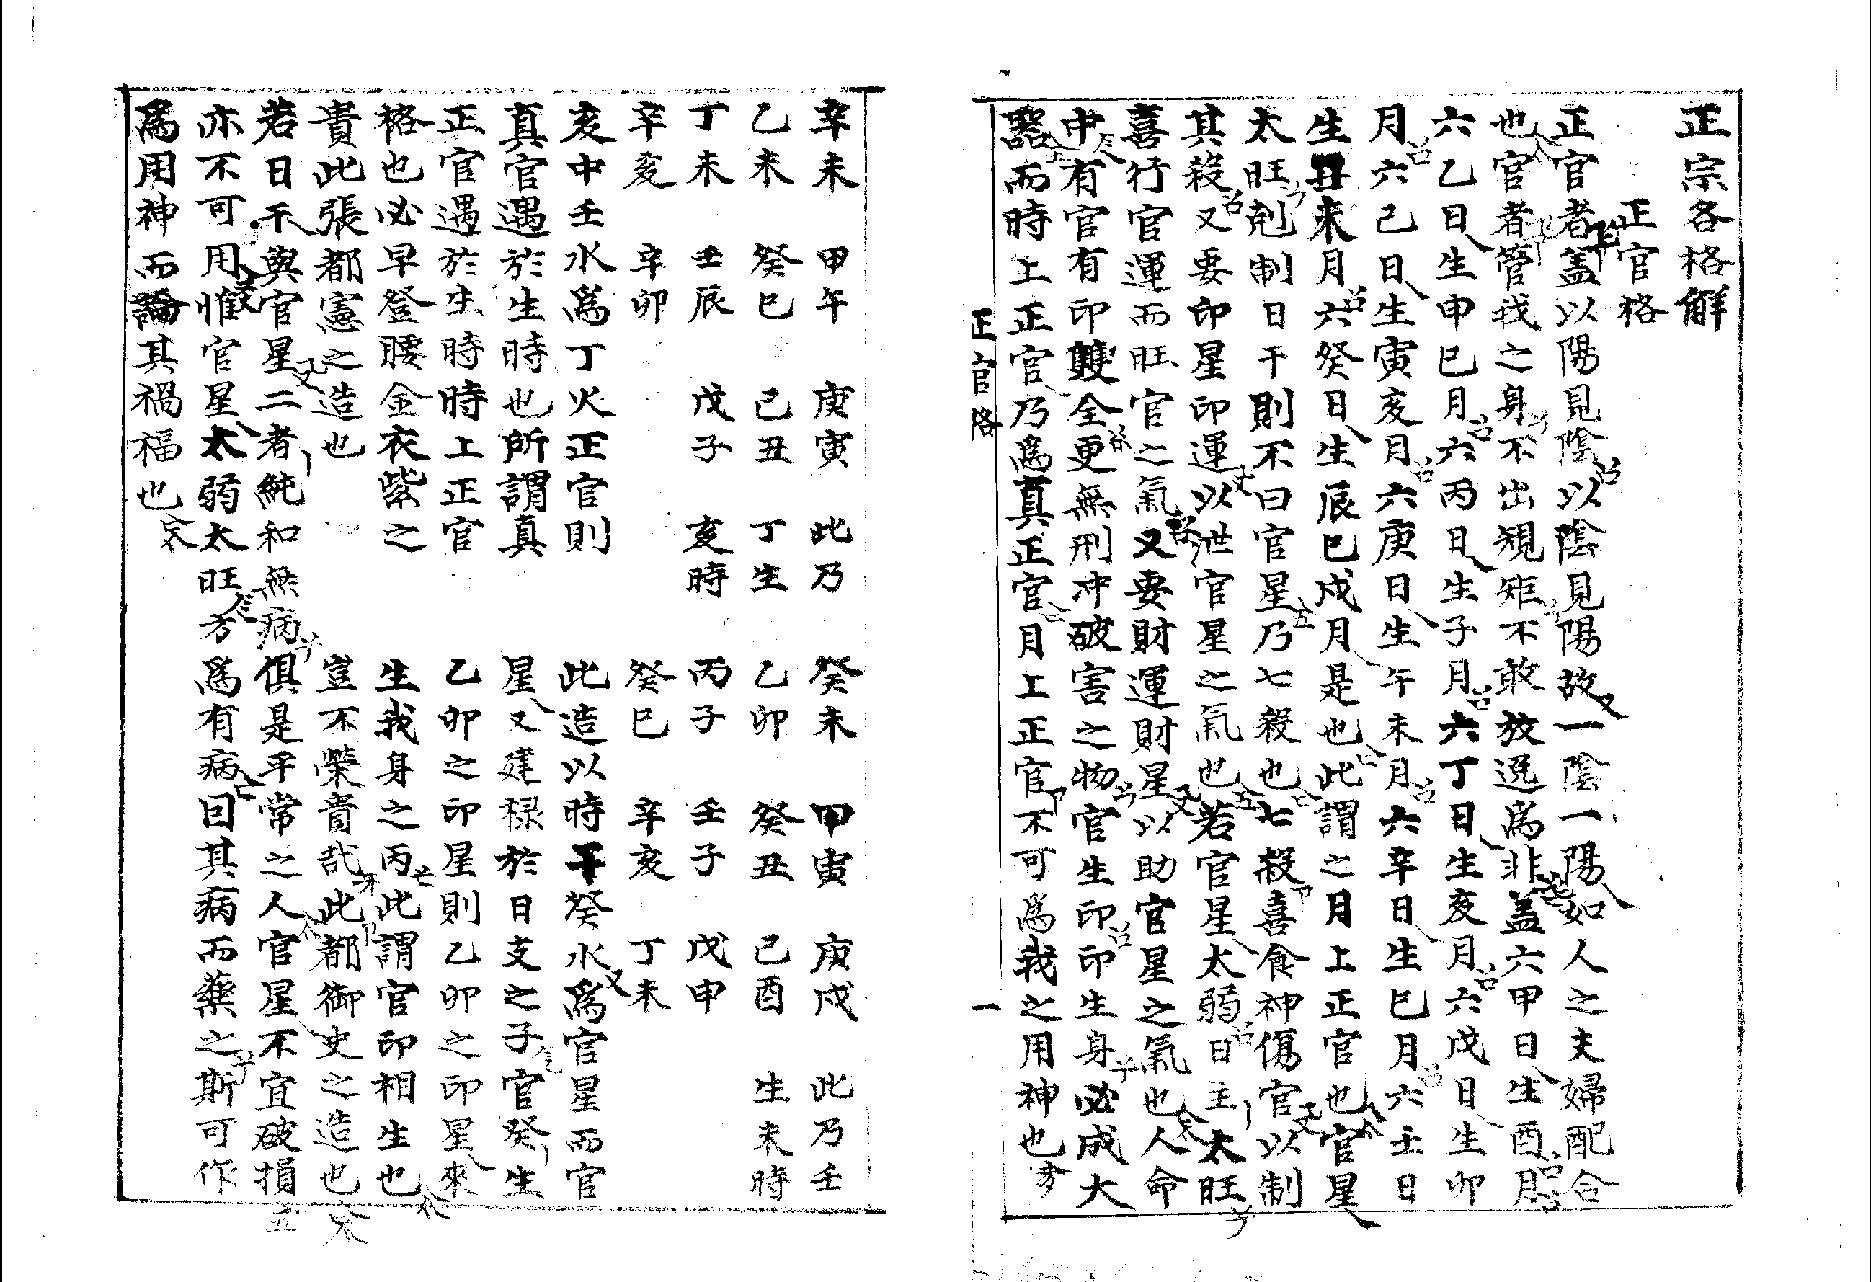 正宗各格解
正官格
正官者盖以陽見陰以陰見陽故一陰一陽如人之夫婦配合
也官者管我之身不出規矩不敢放逸為非盖六甲日生酉月
六乙日生申巳月六丙日生子月六丁日生亥月六戊日生卯
月六己日生寅亥月六庚日生午未月六辛日生巳月六壬日
生丑未月六癸日生辰巳戌月是也此謂之月上正官也官星
太旺剋制日干則不曰官星乃七殺也七殺喜食神傷官以制
其殺又要印星印運以泄官星之氣也若官星太弱日主太旺
喜行官運而旺官之氣又要財運財星以助官星之氣也人命
中有官有印雙全更無刑冲破害之物官生印印生身必成大
器而時上正官乃為真正官月上正官不可為我之用神也
正官格 一
辛未 甲午 庚寅 此乃 癸未 甲寅 庚戌 此乃壬
乙未 癸巳 己丑 丁生 乙卯 癸丑 己酉 生未時
丁未 壬辰 戊子 亥時 丙子 壬子 戊申
辛亥 辛卯 癸巳 辛亥 丁未
亥中壬水為丁火正官則 此造以時干癸水為官星而官
真官遇於生時也所謂真 星又建禄於日支之子官癸生
正官遇於生時時上正官 乙卯之印星則乙卯之印星來
格也必早登腰金衣紫之 生我身之丙此謂官印相生也
貴此張都憲之造也 豈不榮貴哉此都御史之造也
若日干與官星二者純和無病俱是平常之人官星不宜破損
亦不可用惟官星太弱太旺方為有病曰其病而藥之斯可作
為用神而論其禍福也